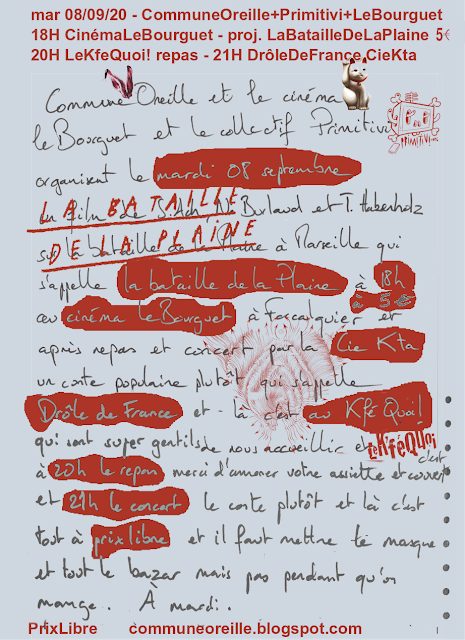 mar 08/09/20 - CommuneOreille+Primitivi+LeBourguet
18H CinémaLeBourguet - proj. LaBatailleDeLaPlaine 5€
20H LeKfeQuoi! repas - 21H DrôleDeFrance CieKta
Commune Oreille et le cinéma
le Bourguet et le collectif Primitivi
PRIMITIVI
organisent le mardi 08 septembre
LA BATAILLE
un film de S. Ach, N. Burlaud et T. Hakenholz
DE LA PLAINE
sur la bataille de la Plaine à Marseille qui
s'appelle la bataille de la Plaine à 18h
à 5€
au cinéma le Bourguet à Forcalquier et
après repas et concert par la Cie Kta
un conte populaire plutôt qui s'appelle
Drôle de France et là c'est au Kfé Quoi!
qui sont super gentils de nous accueillir et
LeKféQUOI
c'est
à 20h le repas merci d'amener votre assiette et couvert
et 21h le concert le conte plutôt et là c'est
tout à prix libre et il faut mettre le masque
et tout le bazar mais pas pendant qu'on
mange. À mardi.
PrixLibre communeoreille.blogspot.com